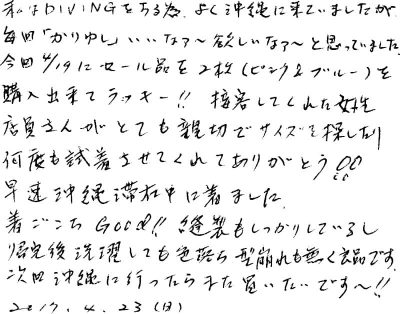 私はDIVINGをする為、よく沖縄に来ていましたが
毎回"かりゆし"いいなァ〜欲しいなァ〜と思っていました。
今回4/19にセール品を2枚(ピンク&ブルー)を
購入出来てラッキー!! 接客してくれた女性
店員さんがとても親切でサイズを探したり
何度も試着させてくれてありがとう!!
早速沖縄滞在中に着ました。
着ごこちGood!! 縫製もしっかりしているし
帰宅後洗濯しても色落ち型崩れも無く良品です。
次回沖縄に行ったらまた買いたいです〜!!
2017.4.23(日)